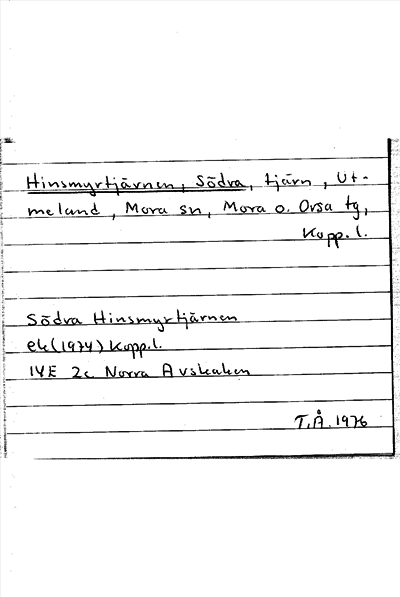 Hinsmyrtjärnen, Södra, tjärn, Ut-
meland, Mora sn, Mora o. Orsa tg,
Kopp. l.
Södra Hinsmyrtjärnen
ek (1974) Kopp.l.
14E 2c Norra Avskaken
T.Å. 1976